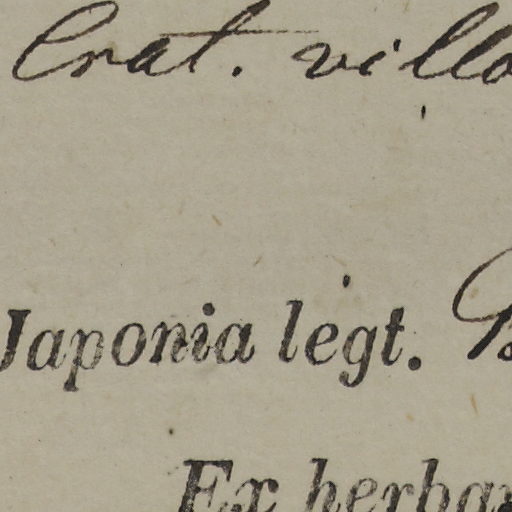 Crat. villo
Japonia legt.
Ex herbar